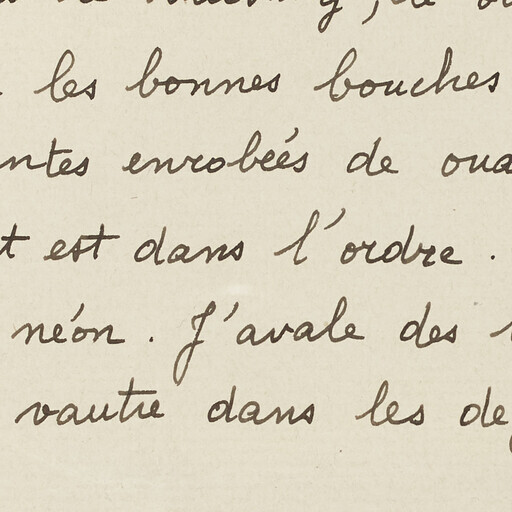 les bonnes bouches
ntes enrobées de oua
t est dans l'ordre.
néon. J'avale des
vautre dans les de